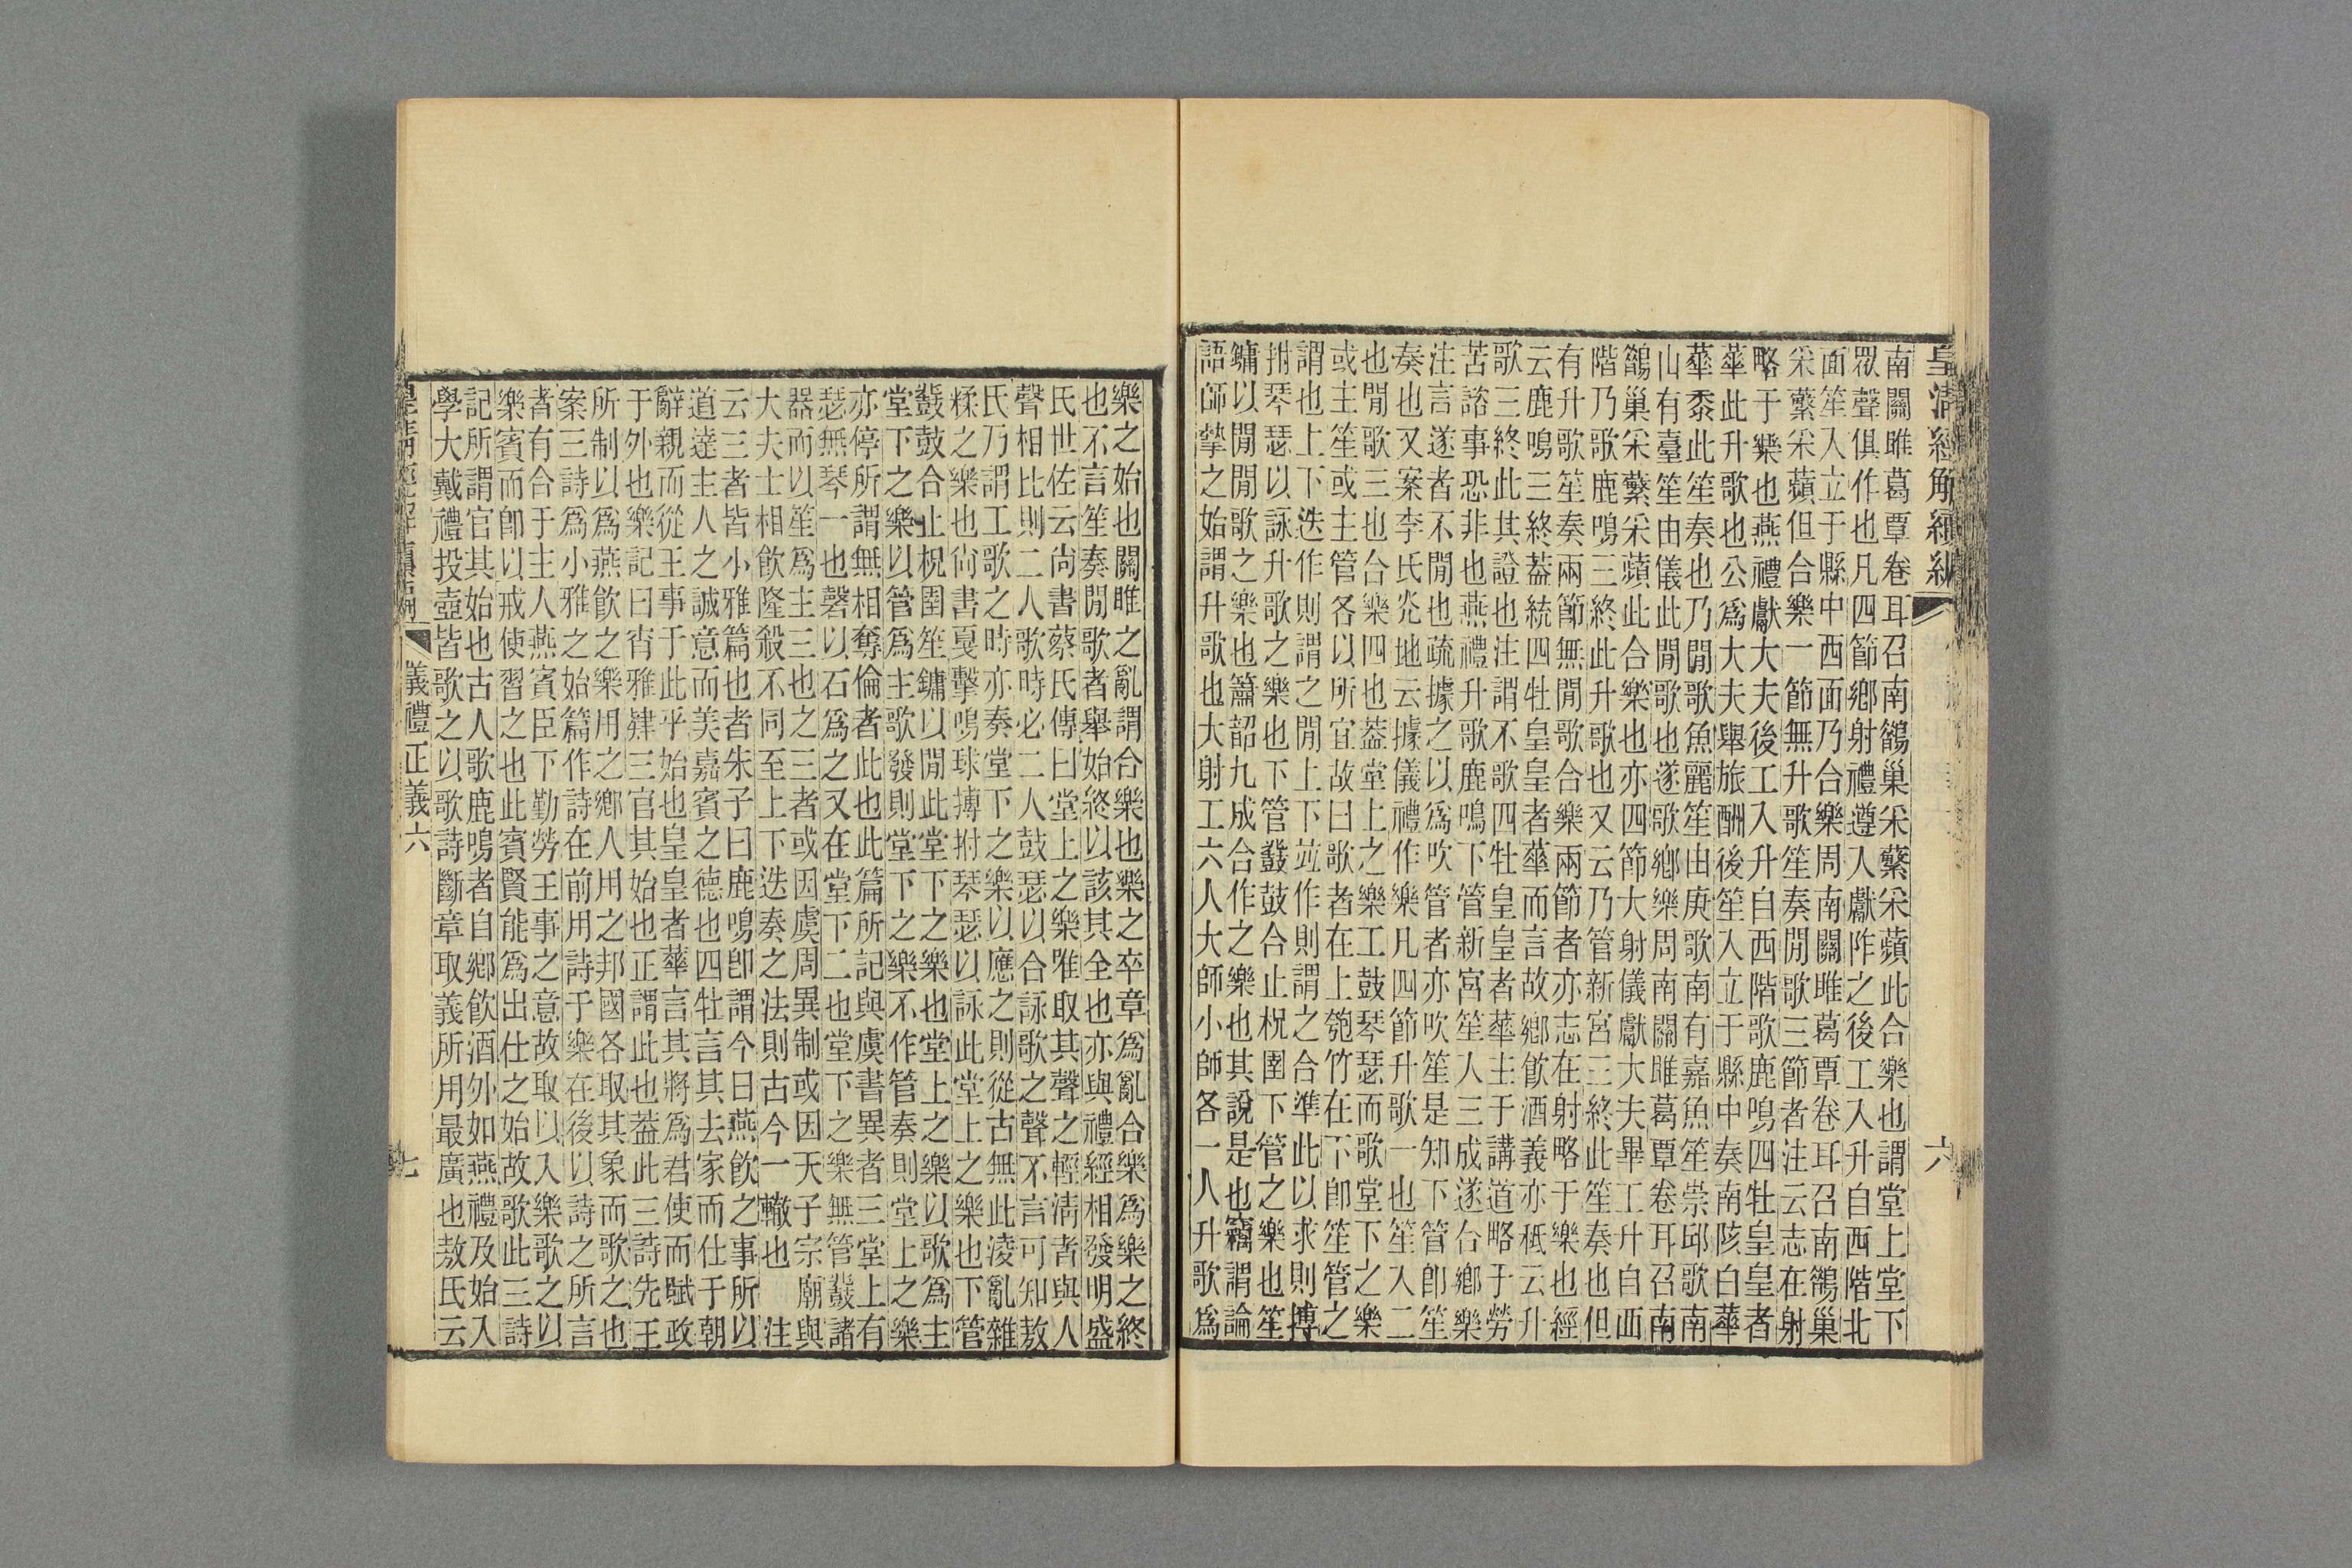 皇清經解續編
六
南關雎葛覃卷耳召南鵲巢采蘩采蘋此合樂也謂堂上堂下
眾聲俱作也凡四節鄉射禮遵入獻阼之後工入升自西階北
面笙入立于縣中西面乃合樂周南關雎葛覃卷耳召南鵲巢
采蘩采蘋但合樂一節無升歌笙奏閒歌三節者注云志在射
略于樂也燕禮獻大夫後工入升自西階歌鹿鳴四牡皇皇者
華此升歌也公爲大夫舉旅酬後笙入立于縣中奏南陔白華
華黍此笙奏也乃閒歌魚麗笙由庚歌南有嘉魚笙崇邱歌南
山有臺笙由儀此閒歌也遂歌鄉樂周南關雎葛覃卷耳召南
鵲巢采蘩采蘋此合樂也亦四節大射儀獻大夫畢工升自西
階乃歌鹿鳴三終此升歌也又云乃管新宮三終此笙奏也但
有升歌笙奏兩節無閒歌合樂兩節者亦志在射略于樂也經
云鹿鳴三終葢統四牡皇皇者華而言故鄉飲酒義亦祗云升
歌三終此其證也注謂不歌四牡皇皇者華主于講道略于勞
苦諮事恐非也燕禮升歌鹿鳴下管新宮笙入三成遂合鄉樂
注言遂者不閒也疏據之以爲吹管者亦吹笙是知下管卽笙
奏也又案李氏光地云據儀禮作樂凡四節升歌一也笙入二
也閒歌三也合樂四也葢堂上之樂工鼓琴瑟而歌堂下之樂
或主笙或主管各以所宜故曰歌者在上匏竹在下卽笙管之
謂也上下迭作則謂之閒上下竝作則謂之合準此以求則搏
拊琴瑟以詠升歌之樂也下管鼗鼓合止柷圉下管之樂也笙
鏞以閒閒歌之樂也簫韶九成合作之樂也其說是也竊謂論
語師摯之始謂升歌也大射工六人大師小師各一人升歌爲
樂之始也關雎之亂謂合樂也樂之卒章爲亂合樂爲樂之終
也不言笙奏閒歌者舉始終以該其全也亦與禮經相發明盛
氏世佐云尚書蔡氏傳曰堂上之樂唯取其聲之輕淸者與人
聲相比則二人歌時必二人鼓瑟以合詠歌之聲不言可知敖
氏乃謂工歌之時亦奏堂下之樂以應之則從古無此淩亂雜
糅之樂也尙書戛擊鳴球搏拊琴瑟以詠此堂上之樂也下管
鼗鼓合止柷圉笙鏞以閒此堂下之樂也堂上之樂以歌爲主
堂下之樂以管爲主歌發則堂下之樂不作管奏則堂上之樂
亦停所謂無相奪倫者此也此篇所記與虞書異者三堂上有
瑟無琴一也磬以石爲之又在堂下二也堂下之樂無管鼗諸
器而以笙爲主三也之三者或因虞周異制或因天子宗廟與
大夫士相飲隆殺不同至上下迭奏之法則古今一轍也　注
云三者皆小雅篇也者朱子曰鹿鳴卽謂今日燕飲之事所以
道達主人之誠意而美嘉賓之德也四牡言其去家而仕于朝
辭親而從王事于此乎始也皇皇者華言其將爲君使而賦政
于外也樂記曰宵雅肄三官其始也正謂此也葢此三詩先王
所制以爲燕飲之樂用之鄉人用之邦國各取其象而歌之也
案三詩爲小雅之始篇作詩在前用詩于樂在後以詩之所言
者有合于主人燕賓臣下勤勞王事之意故取以入樂歌之以
樂賓而卽以戒使習之也此賓賢能爲出仕之始故歌此三詩
記所謂官其始也古人歌鹿鳴者自鄉飲酒外如燕禮及始入
學大戴禮投壺皆歌之以歌詩斷章取義所用最廣也敖氏云
皇清經解續編
義禮正義六
七